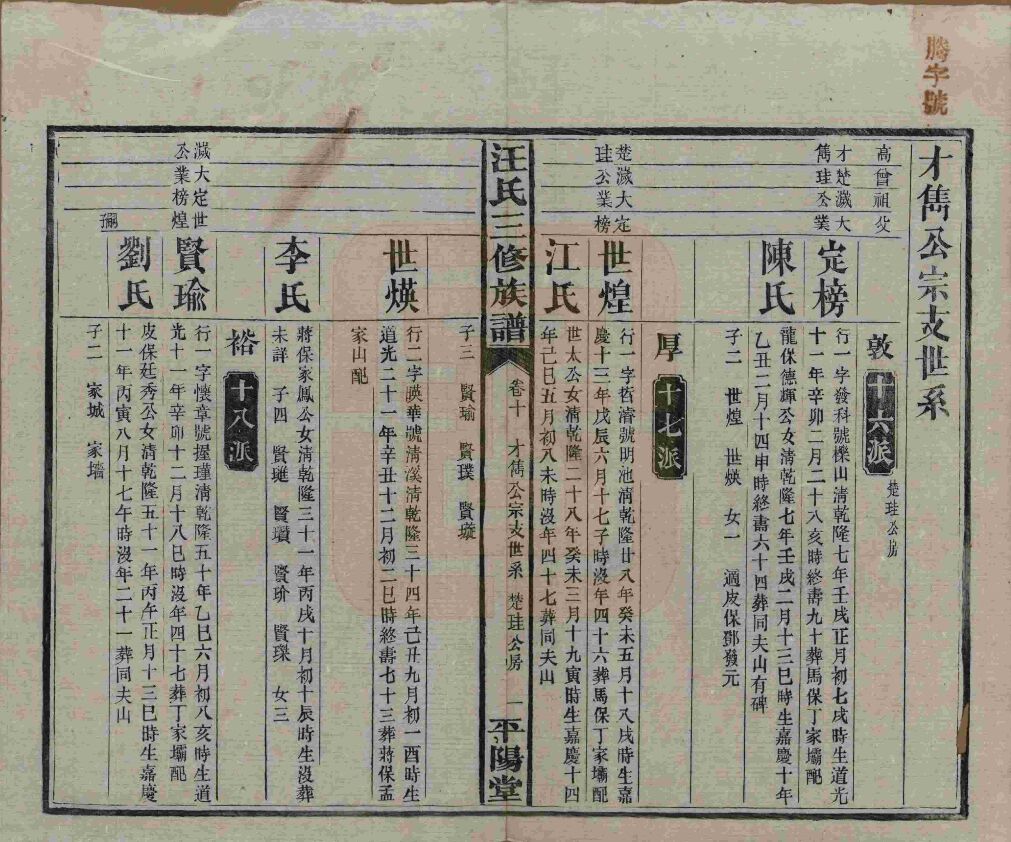 騰字號
才儁公宗支世系
高曾祖父
敦 十六派 楚珪公房
才楚滅大
儁珪公業
定榜
行一字發科號櫟山清乾隆七年壬戌正月初七戌時生道光
十一年辛卯二月二十八亥時終壽九十葬馬保丁家壩配
陳氏
龍保德輝公女清乾隆七年壬戌二月十三巳時生嘉慶十年
乙丑二月十四申時終壽六十四葬同夫山有碑
子二 世煌 世煐 女一 適皮保鄧發元
厚 十七派
楚滅大定
珪公業榜
世煌
行一字哲濬號明池清乾隆廿八年癸未五月十八戌時生嘉
慶十三年戊辰六月十七子時沒年四十六葬馬保丁家壩配
江氏
世太公女清乾隆二十八年癸未三月十九寅時生嘉慶十四
年己巳五月初八未時沒年四十七葬同夫山
汪氏三修族譜 卷十 才儁公宗支世系 楚珪公房 一 平陽堂
子三 賢瑜 賢璞 賢璇
世煐
行二字暎華號清溪清乾隆三十四年己丑九月初一酉時生
道光二十一年辛丑十二月初二巳時終壽七十三葬蔣保孟
家山配
李氏
蔣保家鳳公女清乾隆三十一年丙戌十月初十辰時生沒葬
未詳 子四 賢璡 賢瓚 賢玠 賢瑮 女三
裕 十八派
滅大定世
公業榜煌
賢瑜
行一字懷章號握瑾清乾隆五十年乙巳六月初八亥時生道
光十一年辛卯十二月十八巳時沒年四十七葬丁家壩配
嗣子
劉氏
皮保廷秀公女清乾隆五十一年丙午正月十三巳時生嘉慶
十一年丙寅八月十七午時沒年二十一葬同夫山
子二 家城 家墻